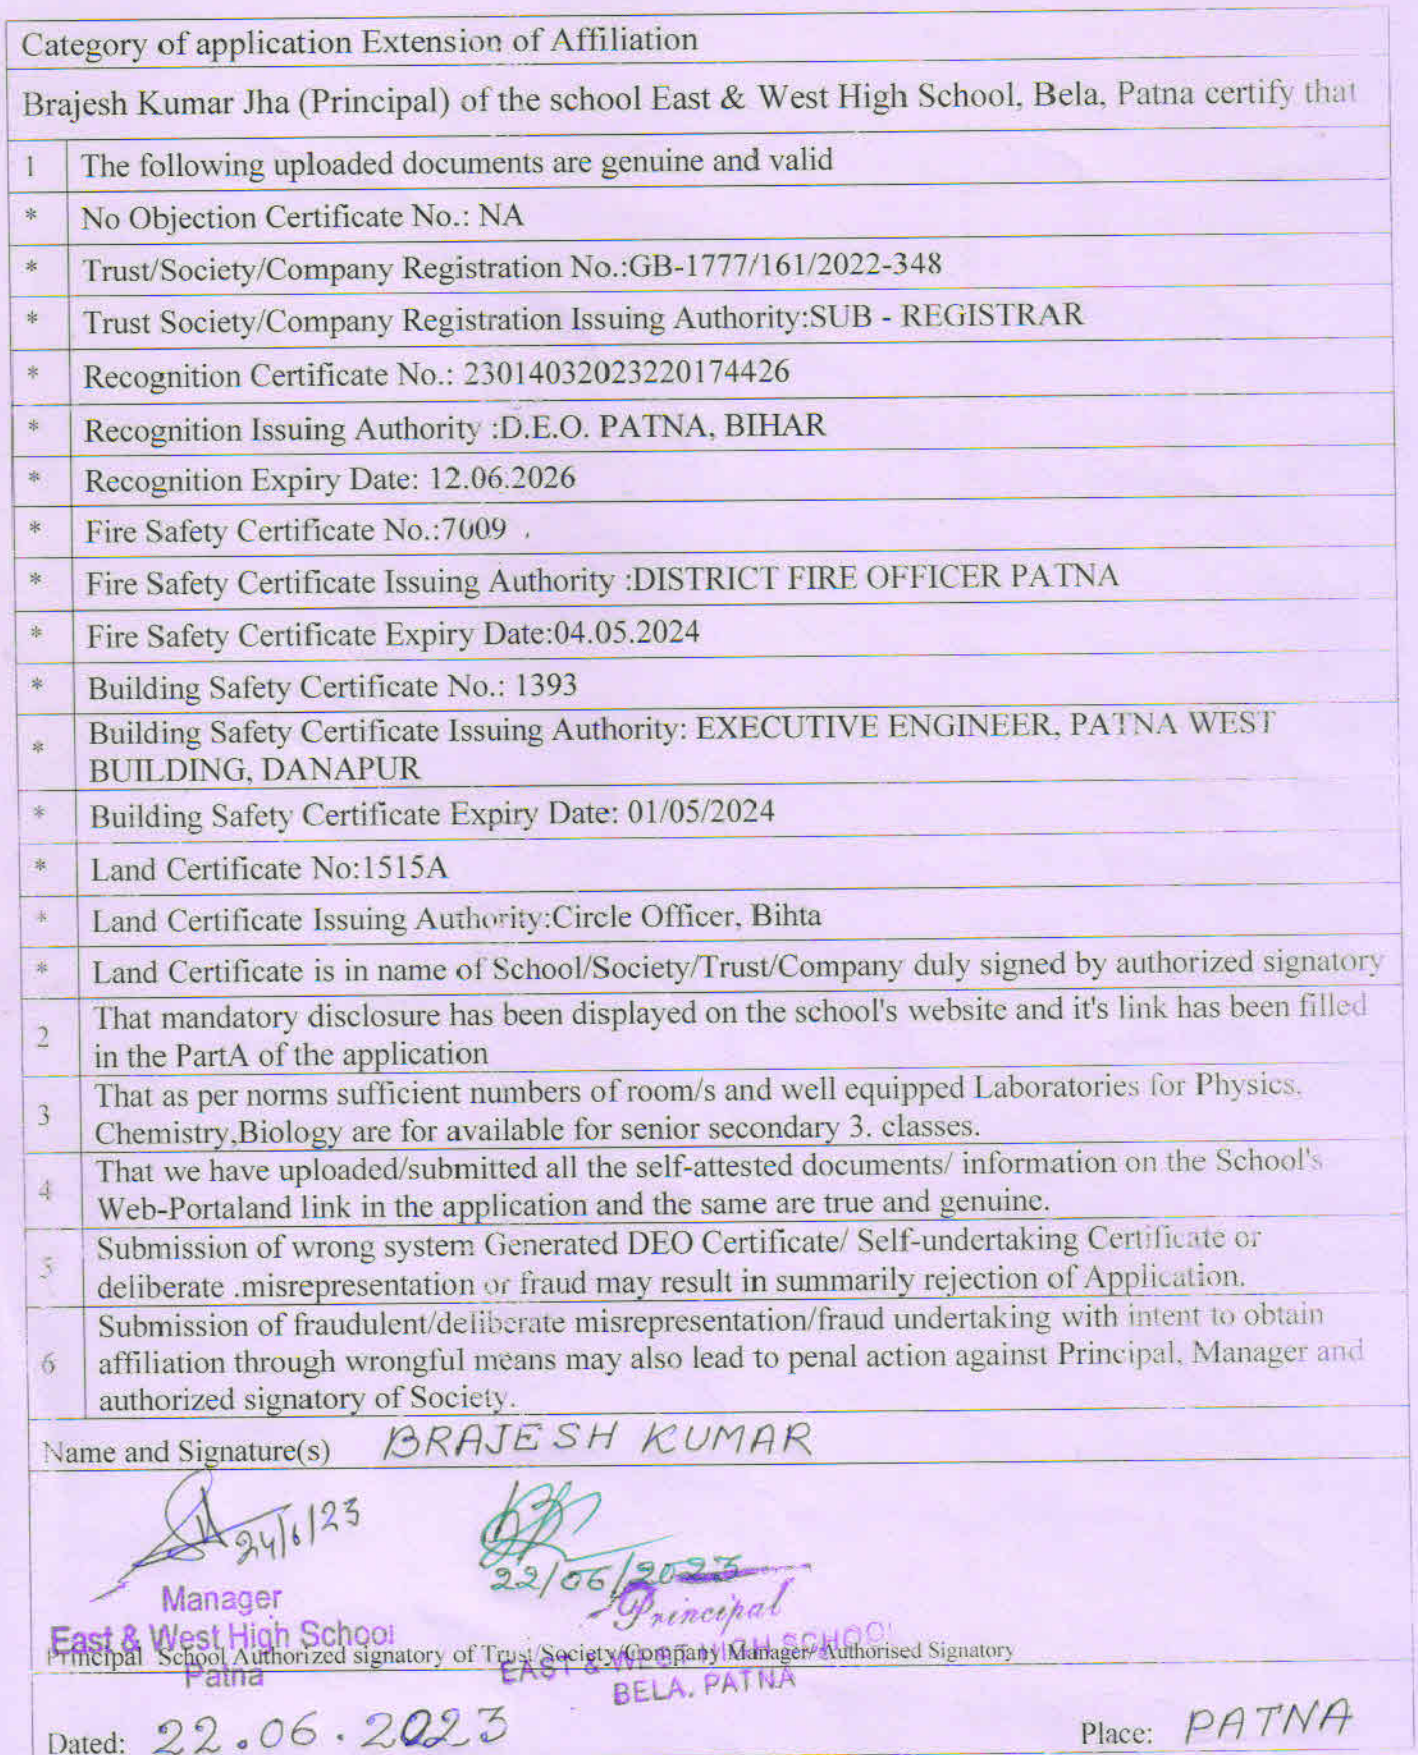 Category of application Extension of Affiliation
Brajesh Kumar Jha (Principal) of the school East & West High School, Bela, Patna certify that
1 The following uploaded documents are genuine and valid
* No Objection Certificate No.: NA
* Trust/Society/Company Registration No.:GB-1777/161/2022-348
* Trust Society/Company Registration Issuing Authority:SUB - REGISTRAR
* Recognition Certificate No.: 23014032023220174426
* Recognition Issuing Authority :D.E.O. PATNA, BIHAR
* Recognition Expiry Date: 12.06.2026
* Fire Safety Certificate No.:7009
* Fire Safety Certificate Issuing Authority :DISTRICT FIRE OFFICER PATNA
* Fire Safety Certificate Expiry Date:04.05.2024
* Building Safety Certificate No.: 1393
* Building Safety Certificate Issuing Authority: EXECUTIVE ENGINEER, PATNA WEST
BUILDING, DANAPUR
* Building Safety Certificate Expiry Date: 01/05/2024
* Land Certificate No:1515A
* Land Certificate Issuing Authority:Circle Officer, Bihta
* Land Certificate is in name of School/Society/Trust/Company duly signed by authorized signatory
2 That mandatory disclosure has been displayed on the school's website and it's link has been filled
in the PartA of the application
3 That as per norms sufficient numbers of room/s and well equipped Laboratories for Physics,
Chemistry,Biology are for available for senior secondary 3. classes.
4 That we have uploaded/submitted all the self-attested documents/ information on the School's
Web-Portaland link in the application and the same are true and genuine.
5 Submission of wrong system Generated DEO Certificate/ Self-undertaking Certificate or
deliberate .misrepresentation or fraud may result in summarily rejection of Application.
6 Submission of fraudulent/deliberate misrepresentation/fraud undertaking with intent to obtain
affiliation through wrongful means may also lead to penal action against Principal, Manager and
authorized signatory of Society.
Name and Signature(s) BRAJESH KUMAR
24/6/23
22/06/2023
Manager
Principal
East & West High School
Principal School Authorized signatory of Trust/Society/Company Manager/Authorised Signatory
EAST & WEST HIGH SCHOOL
Patna
BELA, PATNA
Dated: 22.06.2023 Place: PATNA